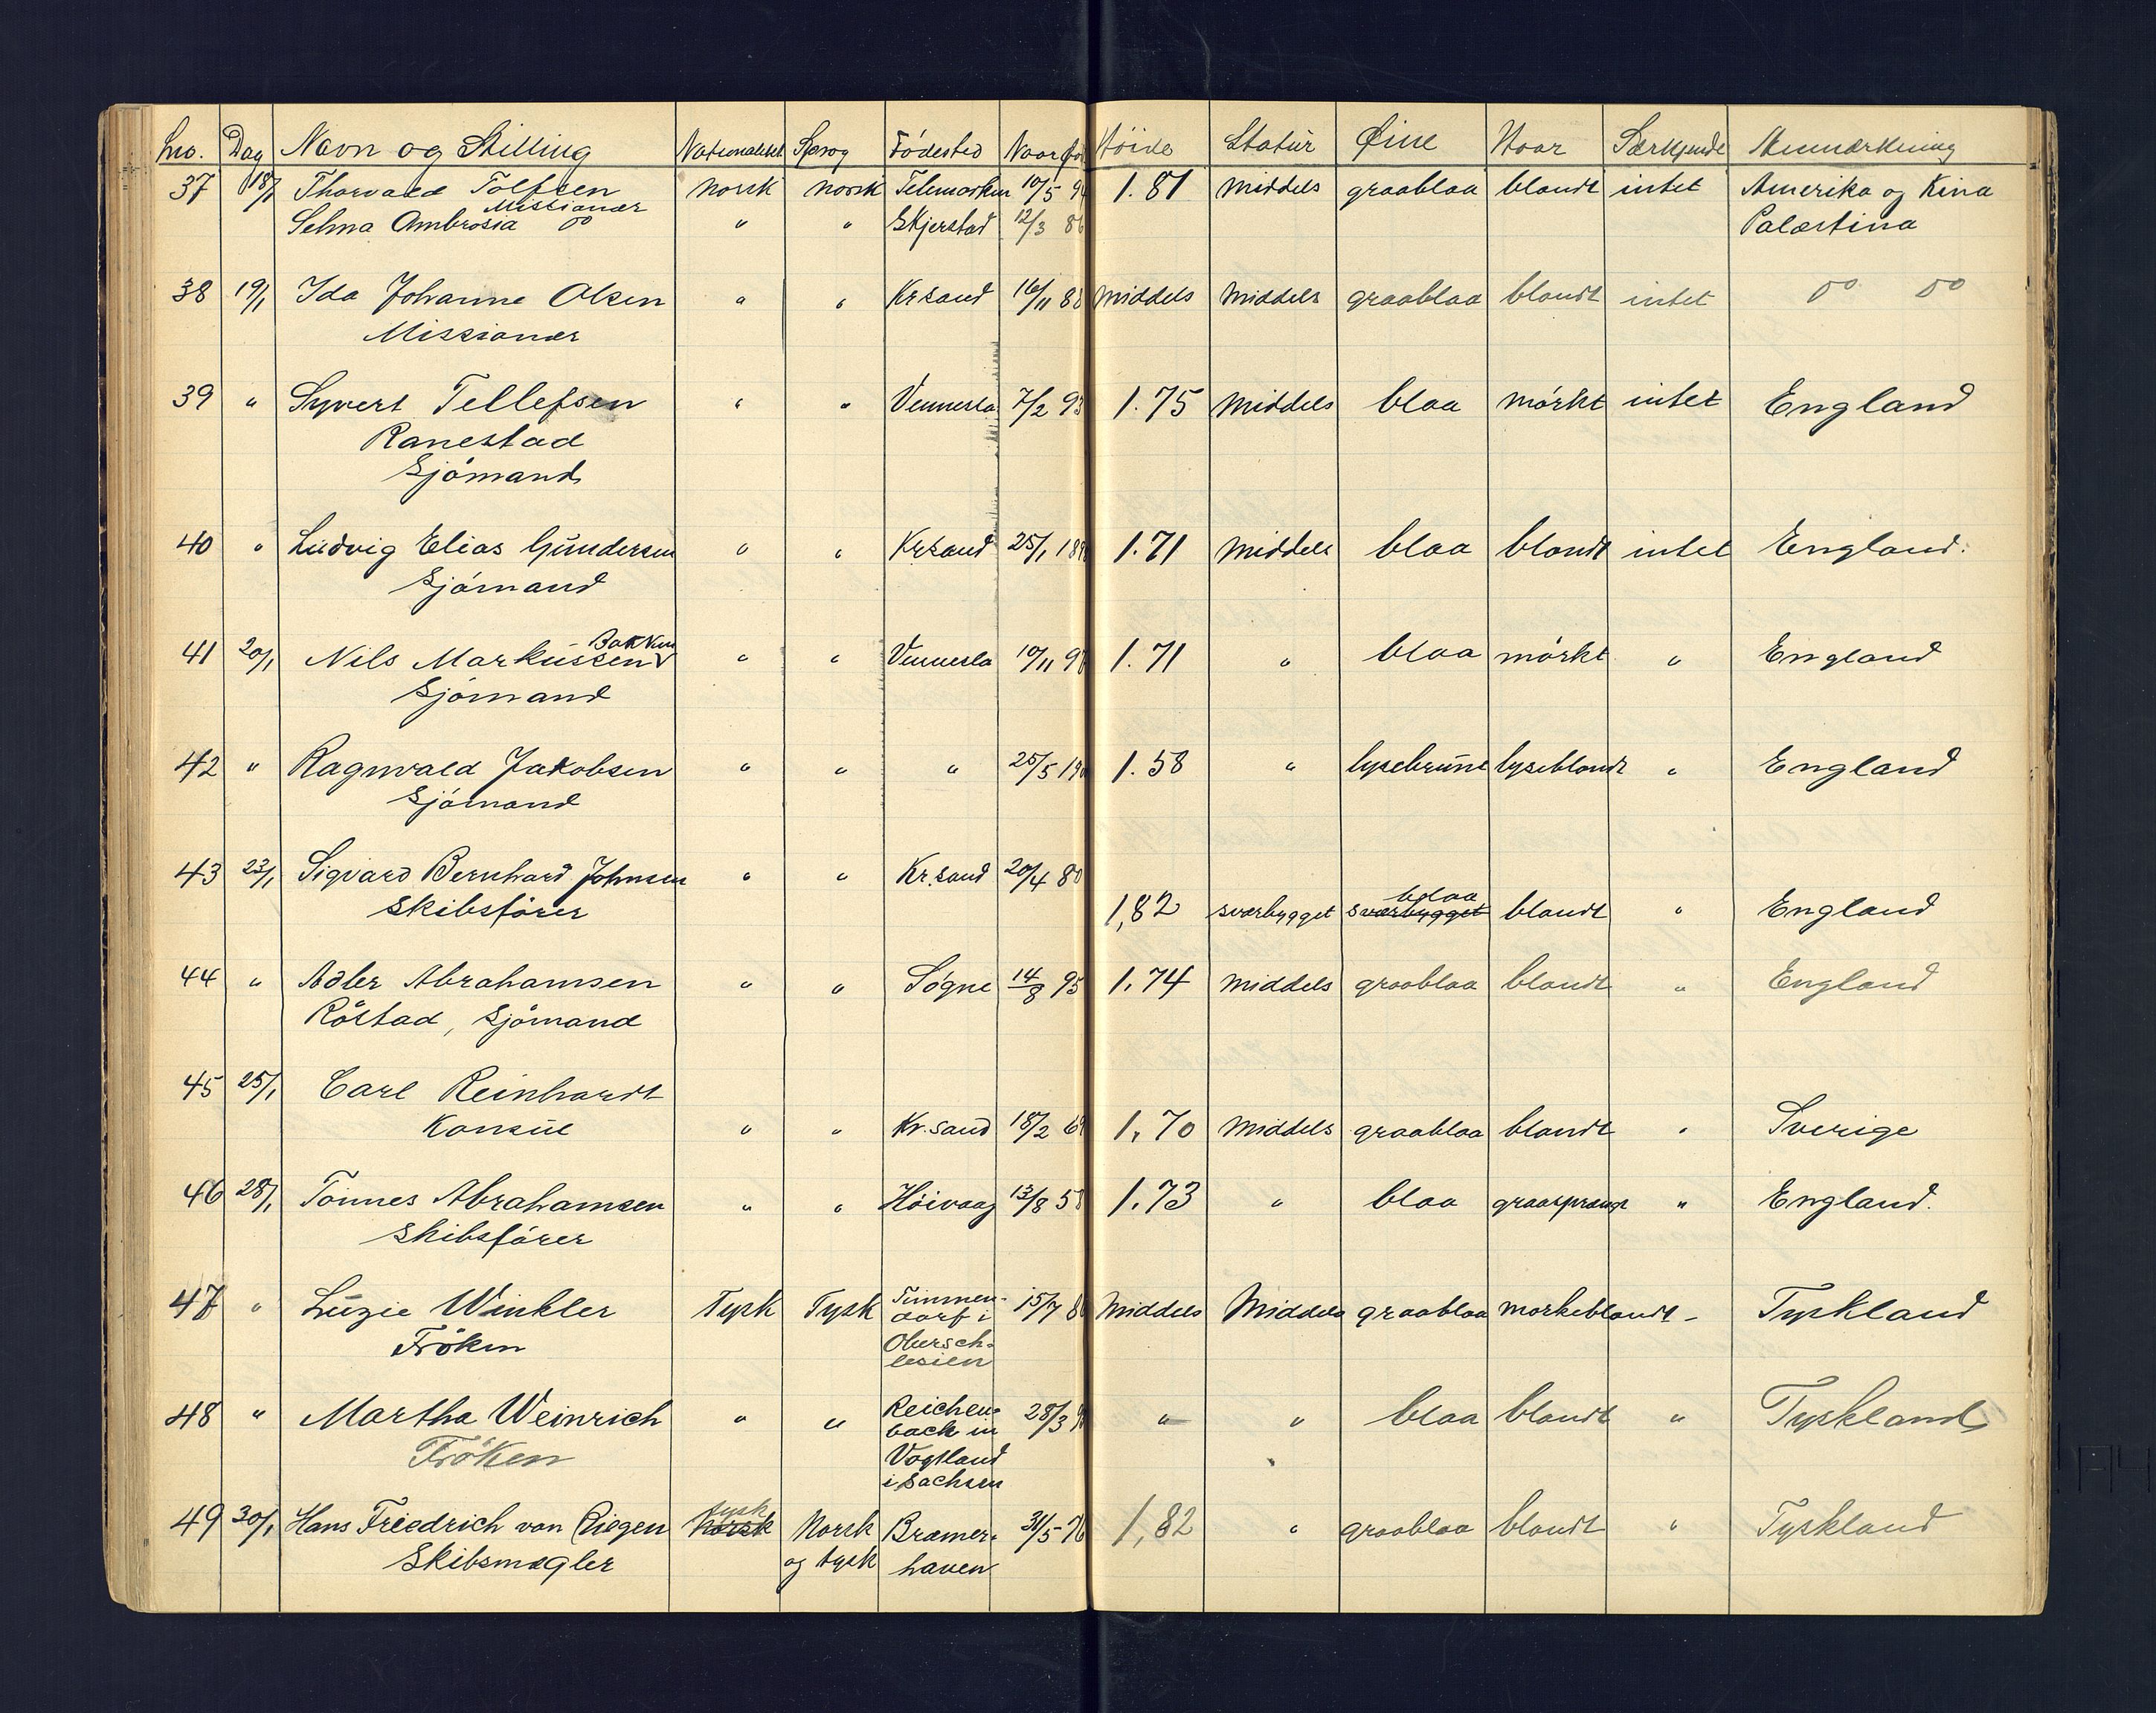 Lno. Dag Navn og Stilling Nationalitet Sprog Födested Naar föd Höide Statur Øine Haar Særkjende Anmærkning
37 18/1 Thorvald Tolfsen norsk norsk Telemarken 10/5 94 1.81 middels graablaa blondt intet Amerika og Kina
Missionær
Selma Ambrosia do " " Skjerstad 12/3 86 Palæstina
38 19/1 Ida Johanne Olsen " " Kr.sand 16/11 88 Middels Middels graablaa blondt intet do do
Missionær
39 " Syvert Tellefsen " " Vennesla 7/2 93 1.75 Middels blaa mörkt intet England
Ranestad
Sjömand
40 " Ludvig Elias Gundersen " " Kr.sand 25/1 1.71 Middels blaa blondt intet England.
Sjömand
Bakken
41 20/1 Nils Markussen " " Vennesla 10/11 1.71 " blaa mörkt " England
Sjömand
42 " Ragnvald Jakobsen " " " 25/5 1.58 " lysebrune lyseblondt " England
Sjömand
43 23/1 Sigvard Bernhard Johnsen " " Kr.sand 20/4 80
blaa
Skibsförer 1,82 sværbygget sværbygget blondt " England
44 " Adler Abrahamsen " " Sögne 14/8 95 1.74 Middels graablaa blondt " England
Röstad, Sjömand
45 25/1 Carl Reinhardt
Konsul " " Kr.sand 18/2 69 1.70 Middels graablaa blondt " Sverige
46 28/1 Tönnes Abrahamsen " " Höivaag 13/8 58 1.73 " blaa graasprængt " England.
Skibsförer
47 " Luzie Winkler Tysk Tysk Timmen- 15/7 Middels Middels graablaa mörkeblondt - Tyskland
Fröken dorf i
Obersch-
lesien
48 " Martha Weinrich " " Reichen- 28/3 " " blaa blondt " Tyskland
Fröken bach in
Vogtland
i Sachsen
tysk
49 30/1 Hans Friedrich von Riegen Norsk Norsk Bramer- 31/5 76 1,82 " graablaa blondt " Tyskland
Skibsmægler og tysk haven